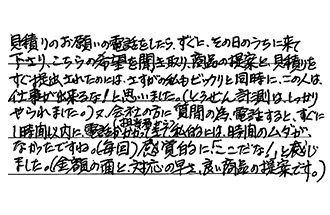 見積りのお願いの電話をしたら、すぐに、その日のうちに来て
下さり、こちらの希望を聞き取り、商品の提案と、見積りを
すぐ提出されたのには、さすがの私もビックリと同時に、この人は、
仕事が出来るな!と思いました。(とうぜん計測は、しっかり
やられました。)又、会社の方に質問の為、電話すると、すぐに
1時間以内に、電話が担当者からかかってきて私的には、時間のムダが、
なかったですね。(毎回)感覚的に「ここだな!」と感じ
ました。(金額の面と、対応の早さ、良い商品の提案です。)